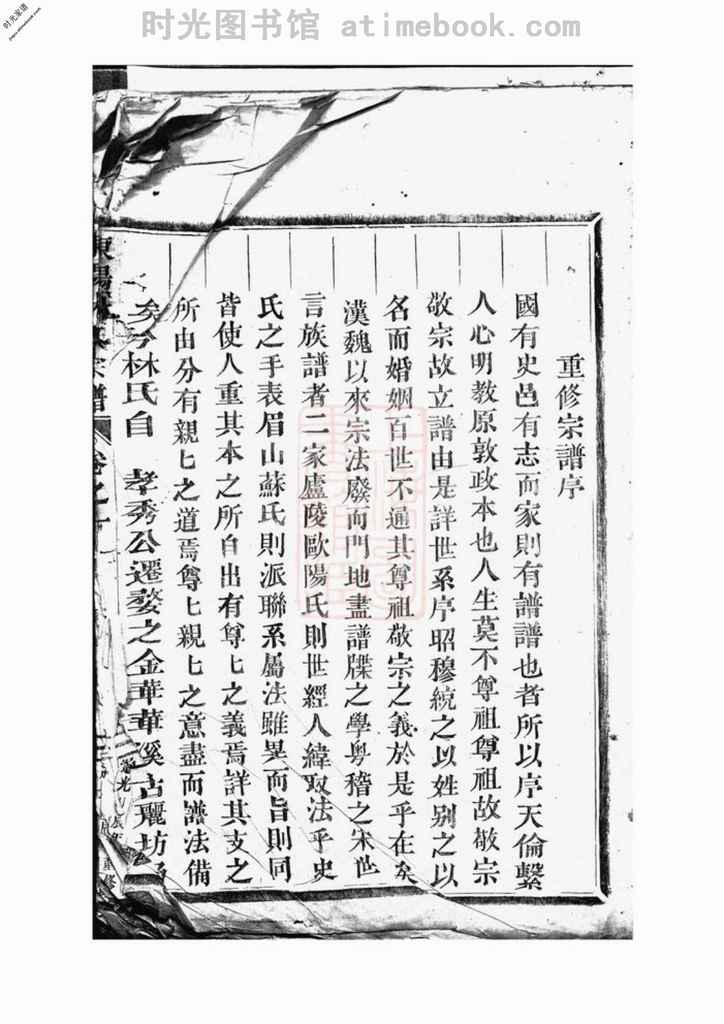 时光图书馆 atimebook.com
时光家谱
重修宗譜序
國有史邑有志而家則有譜譜也者所以序天倫繫
人心明教原敦政本也人生莫不尊祖尊祖故敬宗
敬宗故立譜由是詳世系序昭穆統之以姓别之以
名而婚姻百世不通其尊祖敬宗之義於是乎在矣
漢魏以來宗法廢而門地盡譜牒之學粤稽之宋世
言族譜者二家廬陵歐陽氏則世經人緯取法乎史
氏之手表眉山蘇氏則派聯系屬法雖異而旨則同
皆使人重其本之所自出有尊匕之義焉詳其支之
所由分有親匕之道焉尊匕親匕之意盡而譜法備
矣今林氏自 孝秀公遷婺之金華華溪古麗坊
東陽林氏宗譜 卷之一